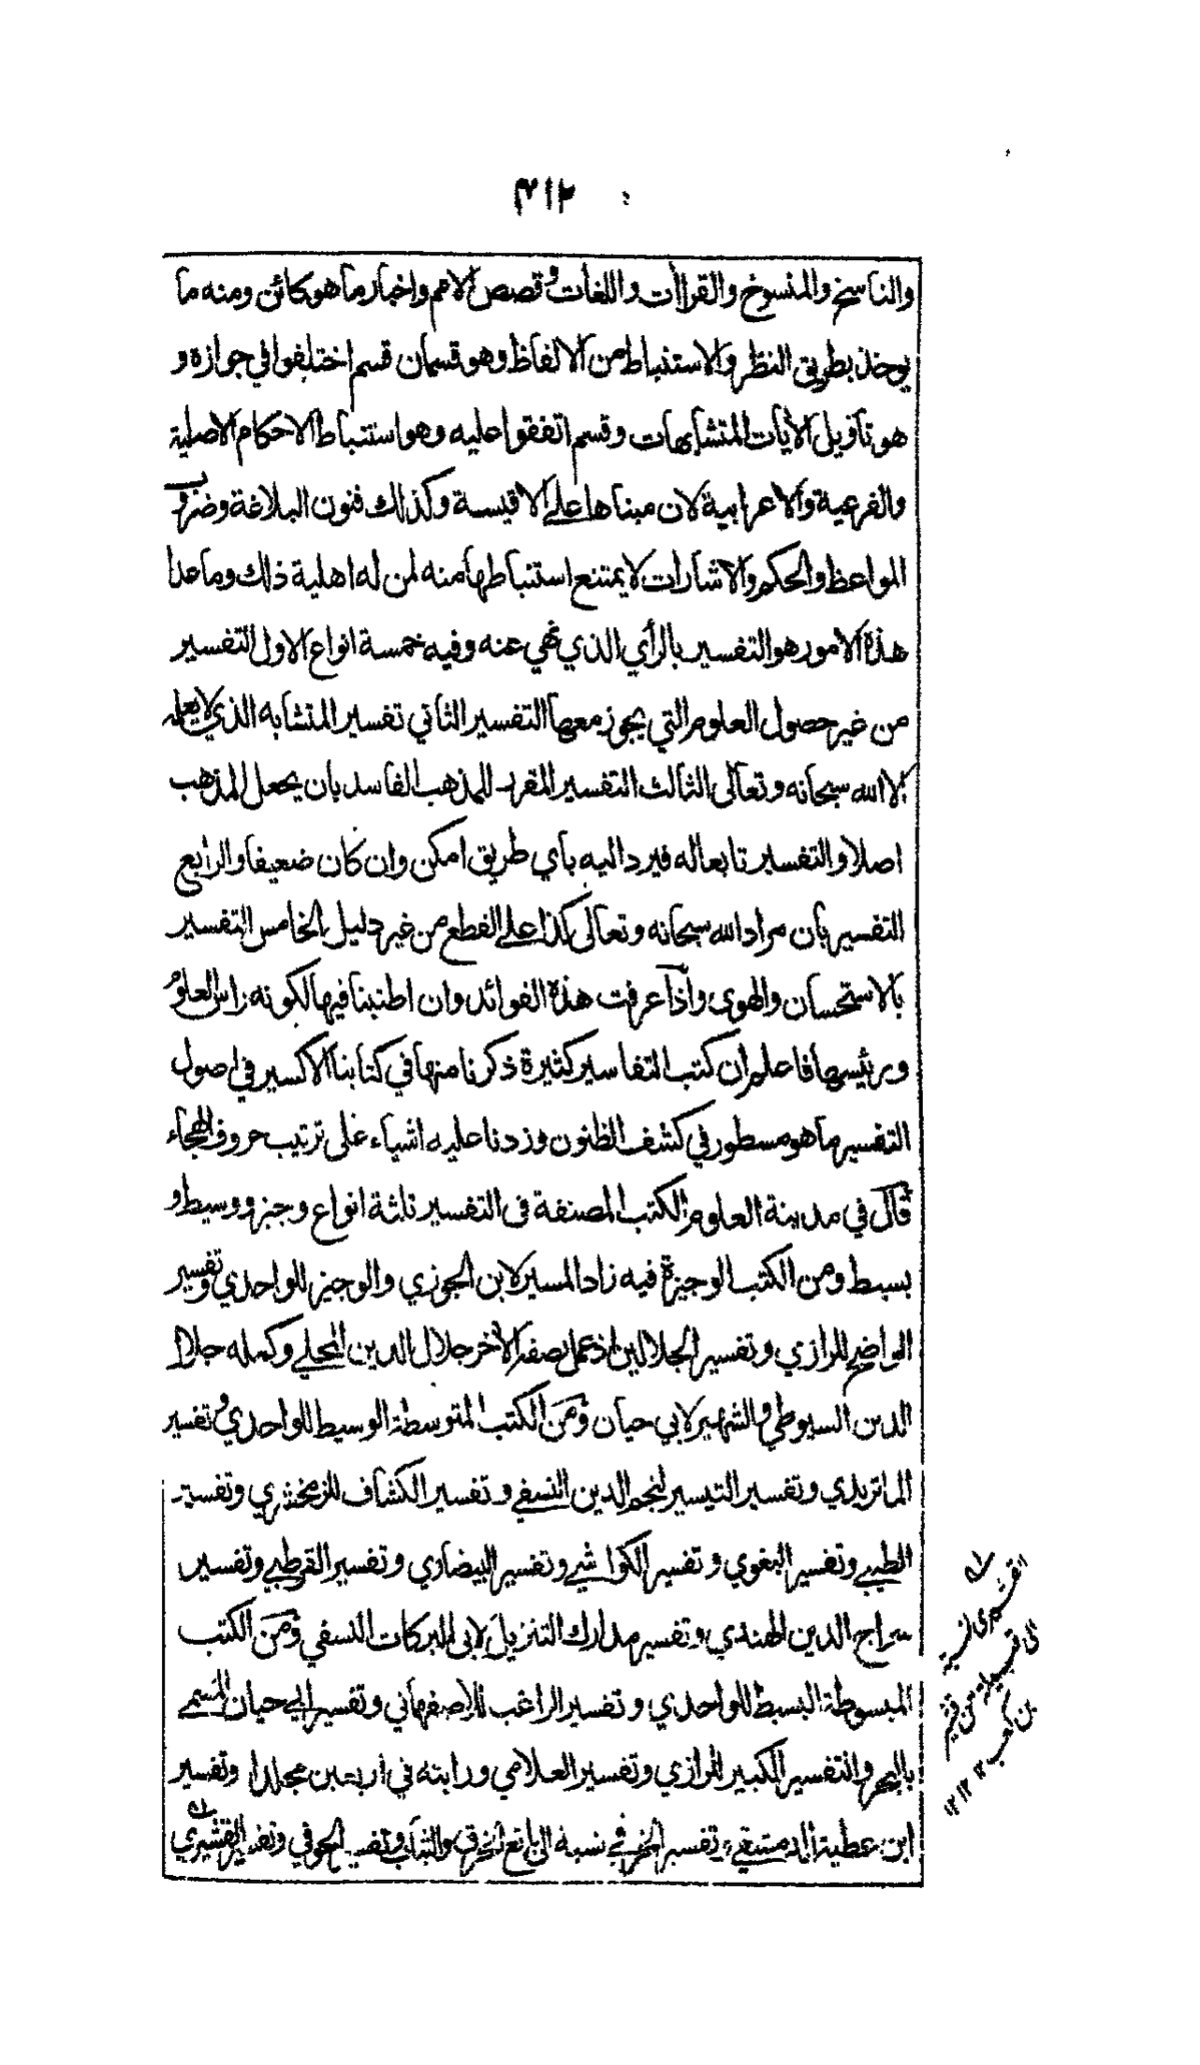 ٣١٢
والناسخ والمنسوخ والقراآت واللغات وقصص الامم واخبار ما هو كائن ومنه ما
يوخذ بطريق النظر والاستنباط من الالفاظ وهو قسمان قسم اختلفوا في جوازه و
هو تاويل الأيات المتشابهات وقسم اتفقوا عليه وهو استنباط الاحكام الاصلية
والفرعية والاعرابية لان مبناها على الاقيسة وكذلك فنون البلاغة وضروب
المواعظ والحكم والاشارات لا يمتنع استنباطها منه لمن له اهلية ذلك وما عدا
هذه الامور هو التفسير بالرأي الذي نهي عنه وفيه خمسة انواع الاول التفسير
من غير حصول العلوم التي يجوز معها التفسير الثاني تفسير المتشابه الذي لا يعلمه
الا الله سبحانه وتعالى الثالث التفسير المقرر للمذهب الفاسد بان يجعل المذهب
اصلا والتفسير تابعا له فيرد اليه باي طريق امكن وان كان ضعيفا والرابع
التفسير بان مراد الله سبحانه وتعالى كذا على القطع من غير دليل الخامس التفسير
بالاستحسان والهوى واذا عرفت هذه الفوائد وان اطنبنا فيها لكونه راس العلوم
ورئيسها فاعلم ان كتب التفاسير كثيرة ذكرنا منها في كتابنا الاكسير في اصول
التفسير ما هو مسطور في كشف الظنون وزدنا عليه اشياء على ترتيب حروف الهجاء
قال في مدينة العلوم والكتب المصنفة في التفسير ثلثة انواع وجيز ووسيط و
بسيط ومن الكتب الوجيزة فيه زاد المسير لابن الجوزي والوجيز للواحدي وتفسير
الواضح للرازي وتفسير الجلالين اذ عمل نصفه الأخر جلال الدين المحلي وكمله جلال
الدين السيوطي والشهير لابي حيان ومن الكتب المتوسطة الوسيط للواحدي وتفسير
الماتريدي وتفسير التيسير لنجم الدين النسفي وتفسير الكشاف للزمخشري وتفسير
الطيبي وتفسير البغوي وتفسير الكواشي وتفسير البيضاوي وتفسير القرطبي وتفسير
سراج الدين الهندي وتفسير مدارك التنزيل لابي البركات النسفي ومن الكتب
المبسوطة البسيط للواحدي وتفسير الراغب للاصفهاني وتفسير ابي حيان المسمى
بالبحر والتفسير الكبير للرازي وتفسير العلامي ورايته في اربعين مجلدا وتفسير
ابن عطية الدمشقي وتفسير الخرقي نسبة الى بائع الخرق والثياب وتفسير الحوفي وتفسير القشيري
القشيري نسبة
الى قبيلة من قشير
بن كعب ١٢ ١٢